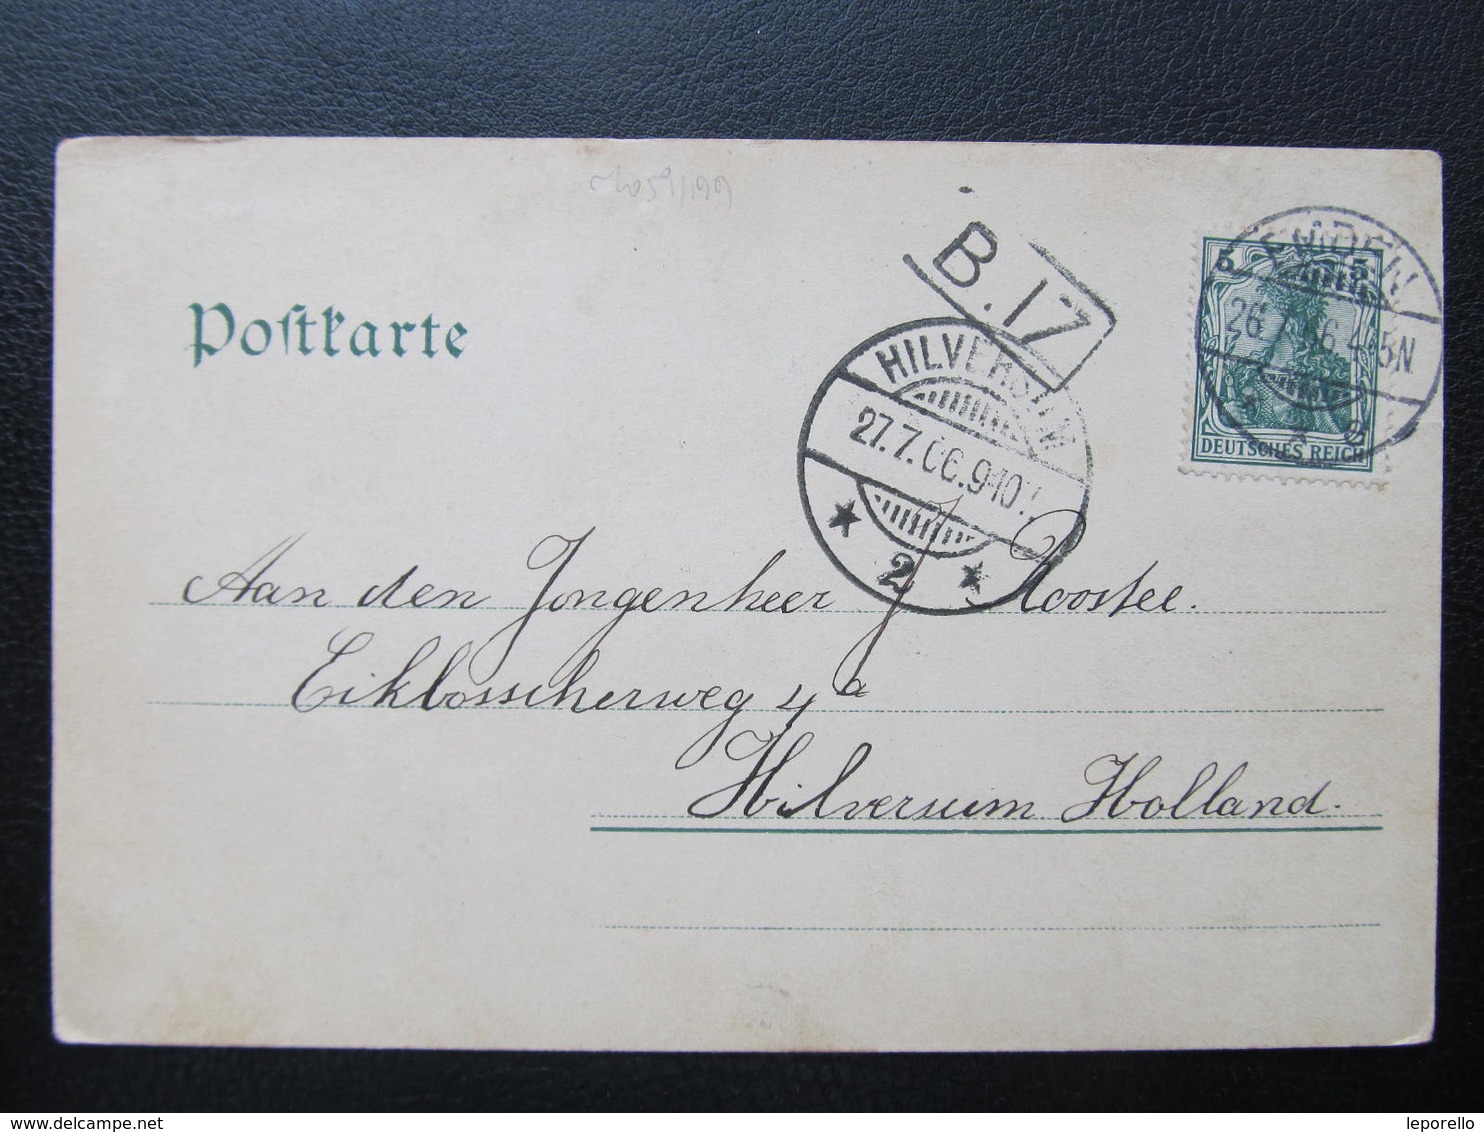 B.17
5 5
26.7.06.4-5N
DEUTSCHES REICH
Poſtkarte
HILVERSUM
27.7.06.9-10
2
Aan den Jongenheer J. Roostee.
Eikbosscherweg 4a
Hilversum Holland.
www.delcampe.net
leporello